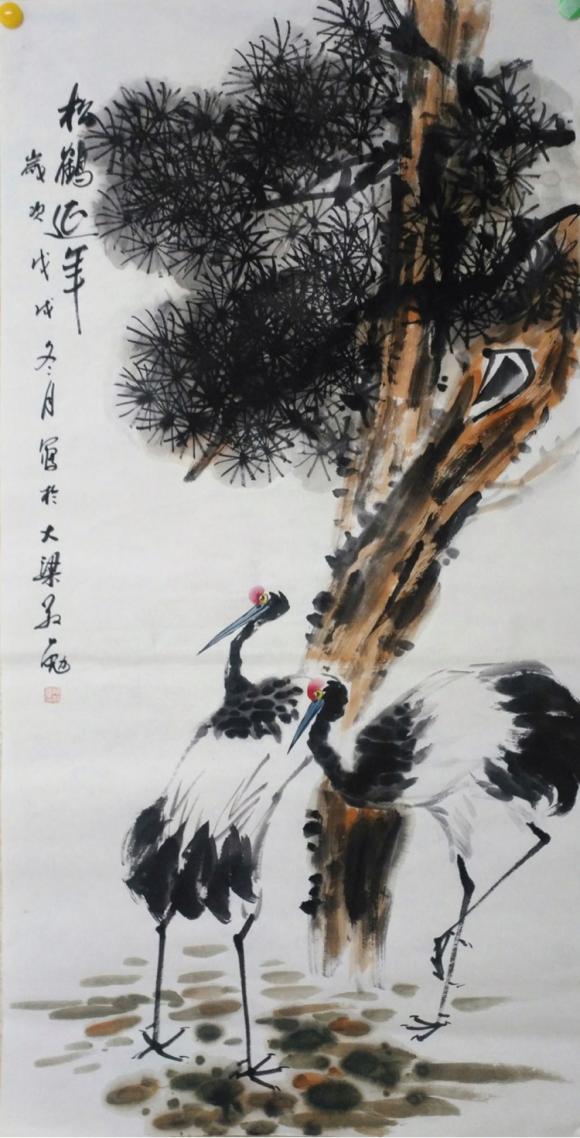 松鶴延年
歲次戊戌冬月寫於大梁